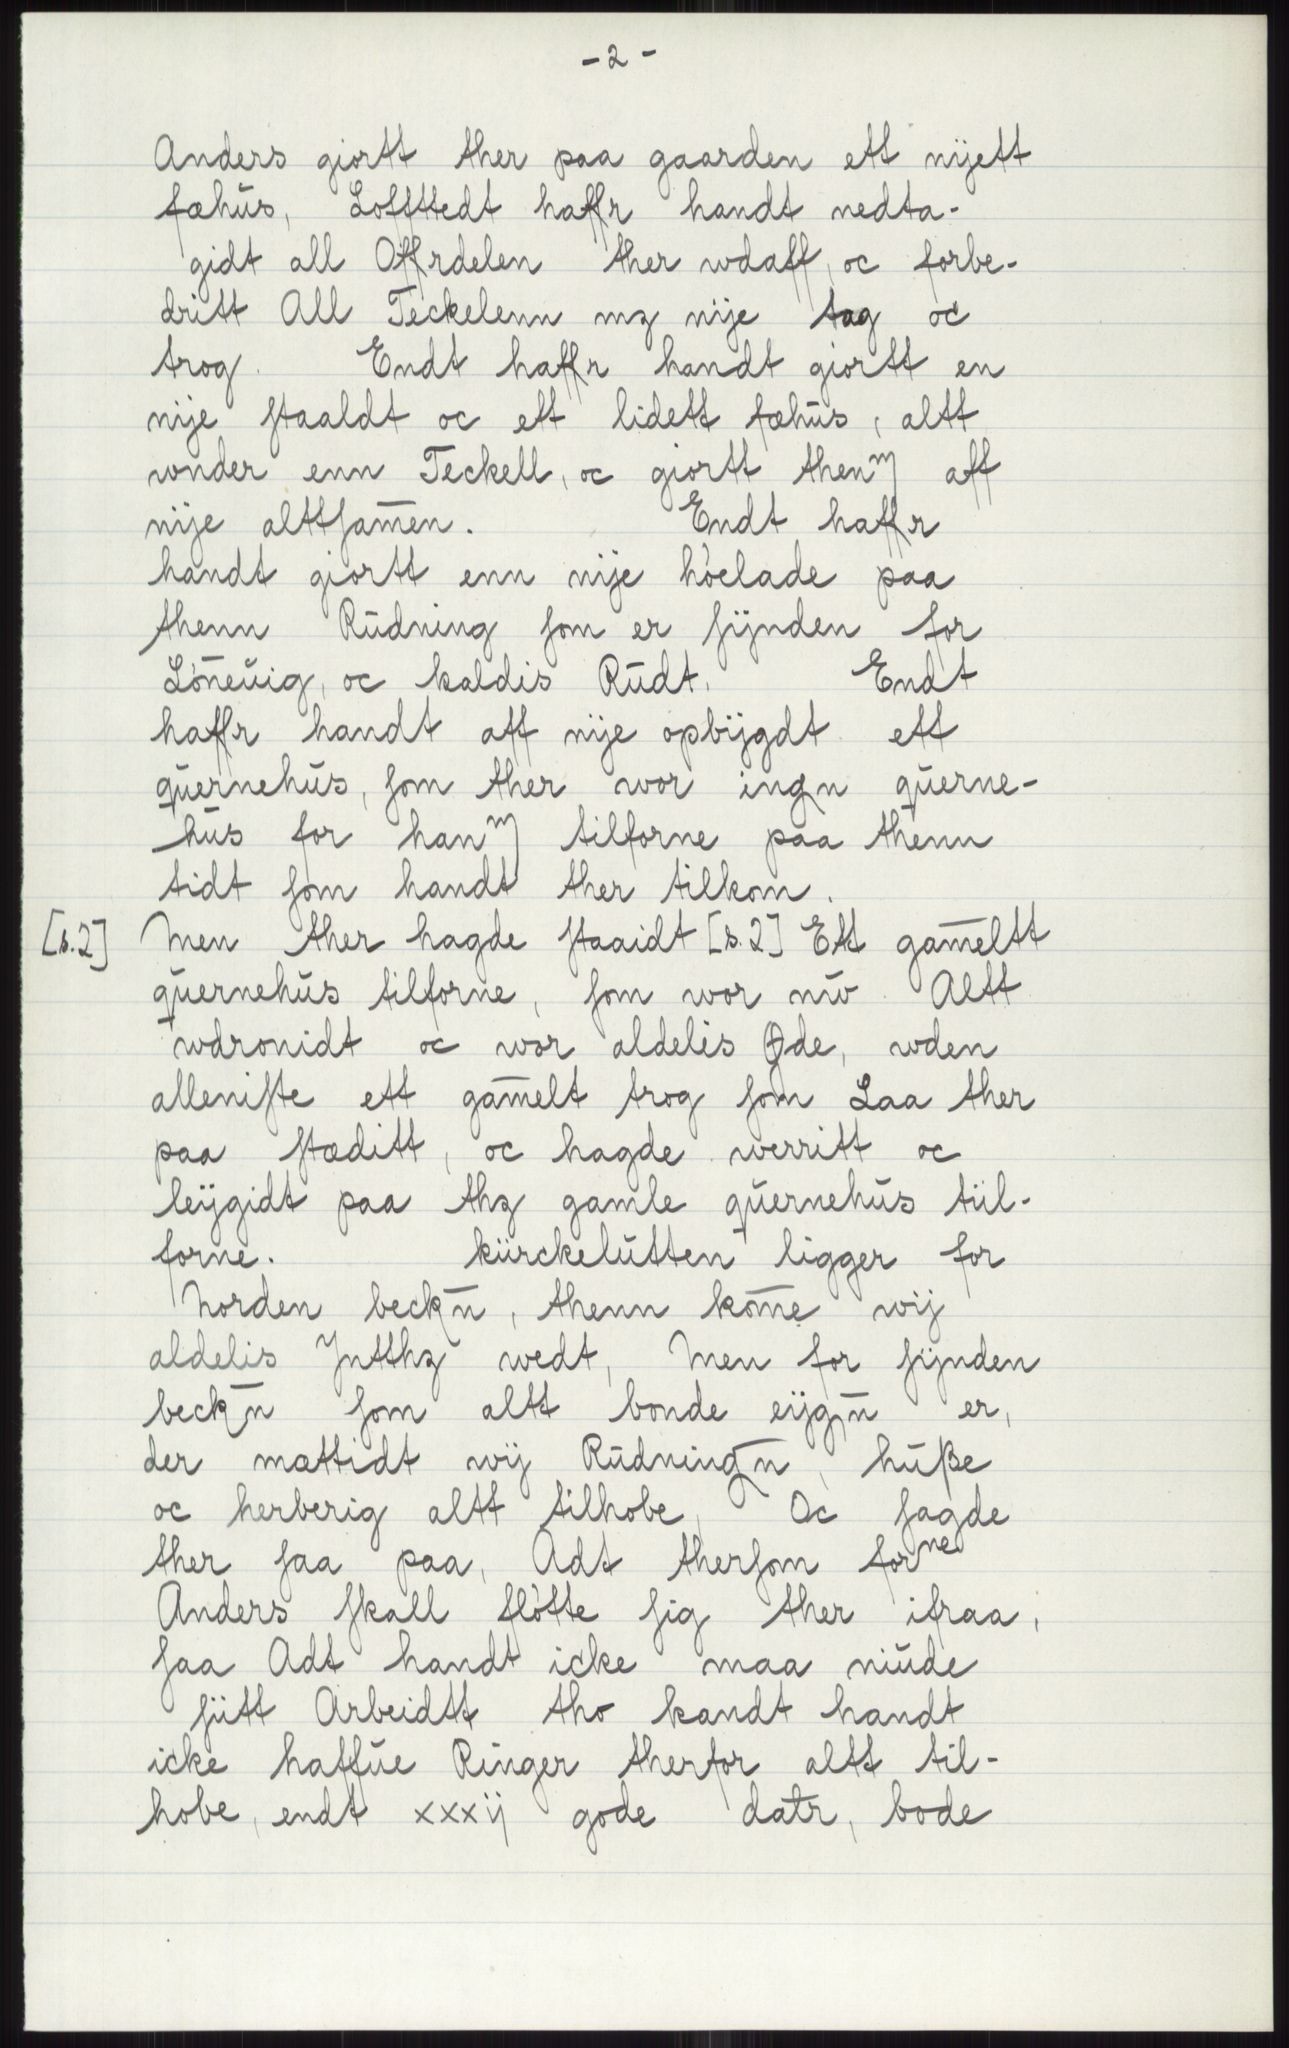 - 2 -
Anders giortt ther paa gaarden ett nyett
fæhus, Loffttedt haffr handt nedta-
gidt all Offrdelen ther wdaff, oc forbe-
dritt All Teckelenn mz nije tag oc
trog. Endt haffr handt giortt en
nije ſtaaldt oc ett lidett fæhūs, altt
wnder enn Teckell, oc giortt thenm aff
nije alttſam̄en. Endt haffr
handt giortt enn nije hòelade paa
thenn Rūdning ſom er ſÿnden for
Lòn̄euig, oc kaldis Rūdt. Endt
haffr handt aff nije opbÿgdt ett
quernehūs, ſom ther wor ingn querne-
hūs for hanm tilforne paa thenn
tidt ſom handt ther tilkom.
[s.2] Men ther hagde ſtaaidt [s.2] Ett gam̄eltt
quernehūs tilforne, ſom wor nw Altt
wdronidt oc wor aldelis Øde, wden
alleniſte ett gam̄elt trog ſom Laa ther
paa ſtæditt, oc hagde werritt oc
leÿgidt paa thz gamle quernehūs tiil-
forne. kiirckelūtten ligger for
Norden beckn̄, thenn kom̄e wij
aldelis Jntthz wedt, Men for ſÿnden
beckn̄ ſom altt bonde eÿgn̄ er,
der mættidt wij Rūdningn̄, hūße
oc herberig altt tilhobe, Oc ſagde
ther ſaa paa, Adt therſom forne
Anders ſkall flòtte ſig ther ifraa,
ſaa Adt handt icke maa niūde
ſiitt Arbeidtt tho kandt handt
icke haffūe Ringer therfor altt til-
hobe, endt xxxij gode datr, bode